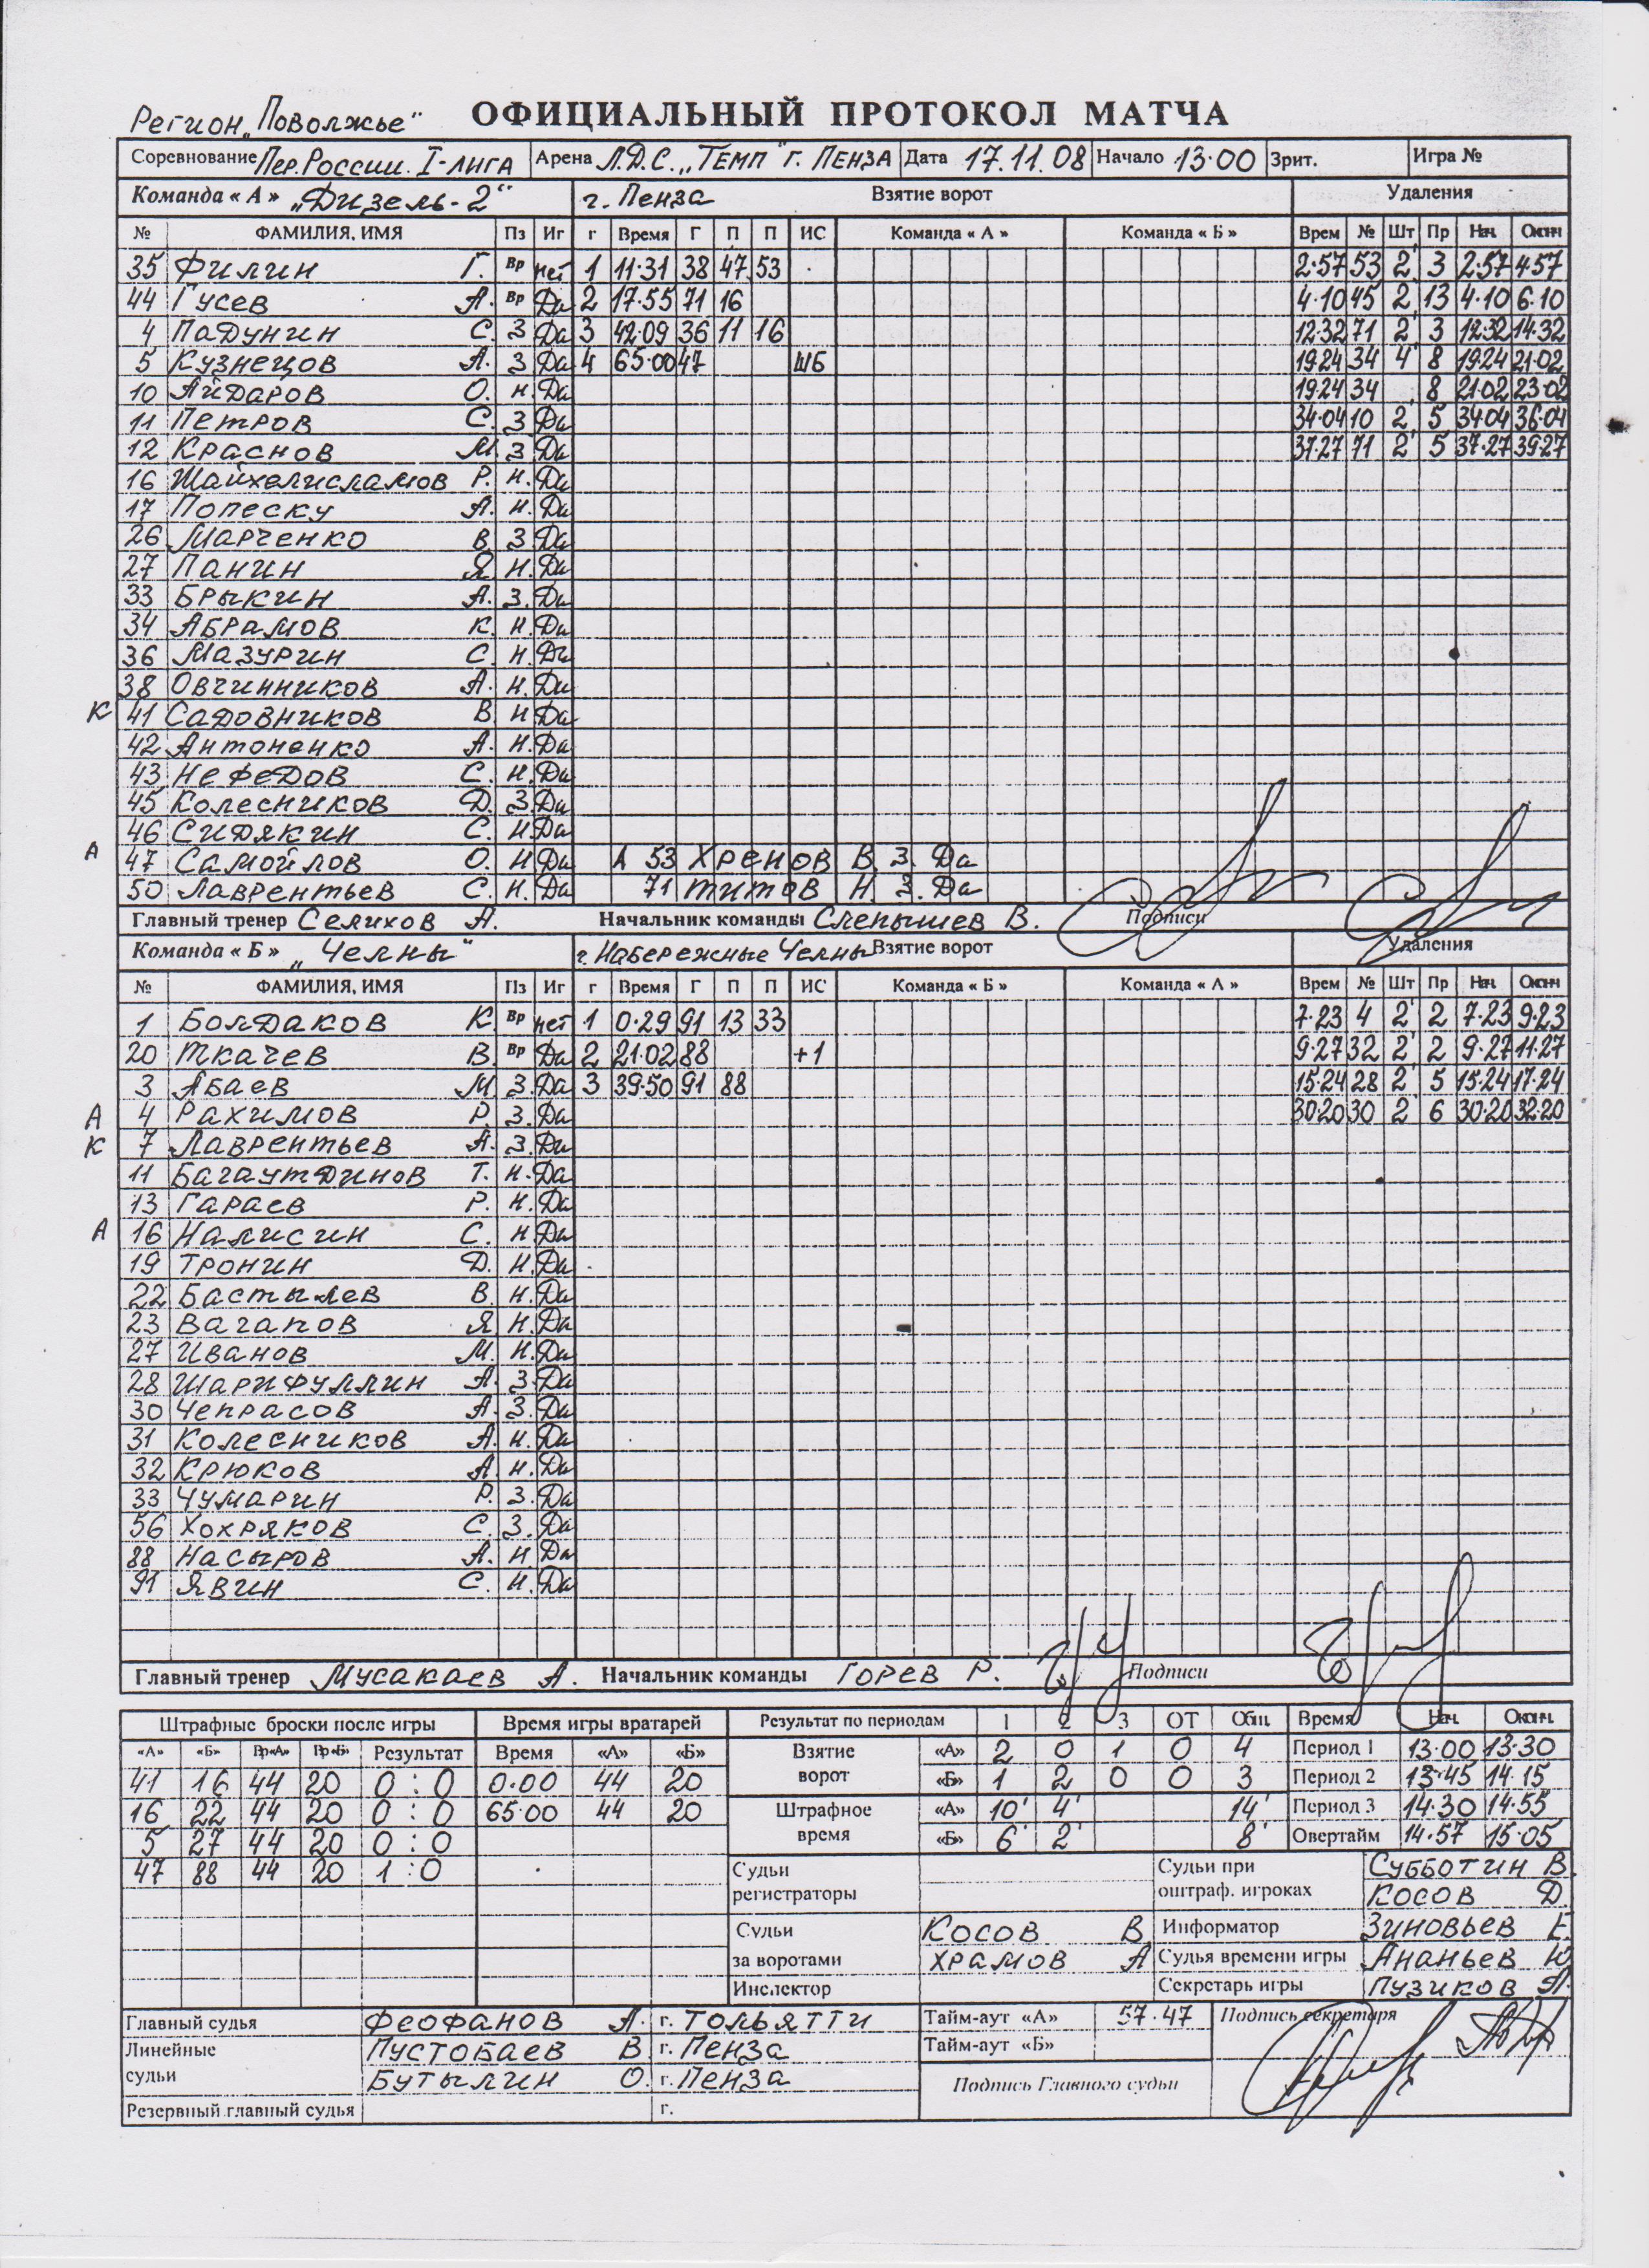 Регион „Поволжье" ОФИЦИАЛЬНЫЙ ПРОТОКОЛ МАТЧА
Соревнование Пер. России. I-лига Арена Л.Д.С. „Темп" г. Пенза Дата 17.11.08 Начало 13·00 Зрит. Игра №
Команда « А » „Дизель-2" г. Пенза Взятие ворот Удаления
№ ФАМИЛИЯ, ИМЯ Пз Иг г Время Г П П ИС Команда « А » Команда « Б » Врем № Шт Пр Нач. Оконч
35 Филин Г. Вр нет 1 11·31 38 47 53 2·57 53 2' 3 2·57 4·57
44 Гусев А. Вр Да 2 17·55 71 16 4·10 45 2' 13 4·10 6·10
4 Падунин С. З Да 3 42·09 36 11 16 12·32 71 2' 3 12·32 14·32
5 Кузнецов А. З Да 4 65·00 47 ШБ 19·24 34 4' 8 19·24 21·02
10 Айдаров О. Н. Да 19·24 34 8 21·02 23·02
11 Петров С. З Да 34·04 10 2' 5 34·04 36·04
12 Краснов М. З Да 37·27 71 2' 5 37·27 39·27
16 Шайхелисламов Р. Н. Да
17 Попеску А. Н. Да
26 Марченко В. З. Да
27 Панин Я. Н. Да
33 Брыкин А. З. Да
34 Абрамов К. Н. Да
36 Мазурин С. Н. Да
38 Овчинников А. Н. Да
К 41 Садовников В. Н Да
42 Антоненко А. Н. Да
43 Нефедов С. Н. Да
45 Колесников Д. З. Да
46 Сидякин С. Н. Да
А 47 Самойлов О. Н Да А 53 Хренов В. З. Да
50 Лаврентьев С. Н. Да 71 Титов Н. З. Да
Главный тренер Селихов А. Начальник команды Слепышев В. Подписи
Команда « Б » „Челны" г. Набережные Челны Взятие ворот Удаления
№ ФАМИЛИЯ, ИМЯ Пз Иг г Время Г П П ИС Команда « Б » Команда « А » Врем № Шт Пр Нач. Оконч
1 Болдаков К. Вр нет 1 0·29 91 13 33 7·23 4 2' 2 7·23 9·23
20 Ткачев В. Вр Да 2 21·02 88 +1 9·27 32 2' 2 9·27 11·27
3 Абаев М. З. Да 3 39·50 91 88 15·24 28 2' 5 15·24 17·24
А 4 Рахимов Р. З. Да 30·20 30 2' 6 30·20 32·20
К 7 Лаврентьев А. З. Да
11 Багаутдинов Т. Н. Да
13 Гараев Р. Н. Да
А 16 Налисин С. Н. Да
19 Тронин Д. Н. Да
22 Бастылев В. Н. Да
23 Вагапов Я. Н. Да
27 Иванов М. Н. Да
28 Шарифуллин А. З. Да
30 Чепрасов А. З. Да
31 Колесников А. Н. Да
32 Крюков А. Н. Да
33 Чумарин Р. З. Да
56 Хохряков С. З. Да
88 Насыров А. Н Да
91 Явин С. Н. Да
Главный тренер Мусакаев А. Начальник команды Горев Р. Подписи
Штрафные броски после игры Время игры вратарей Результат по периодам 1 2 3 ОТ Общ. Время Нач. Оконч.
«А» «Б» Вр«А» Вр«Б» Результат Время «А» «Б» Взятие ворот «А» 2 0 1 0 4 Период 1 13·00 13·30
41 16 44 20 0 : 0 0·00 44 20 «Б» 1 2 0 0 3 Период 2 13·45 14·15
16 22 44 20 0 : 0 65·00 44 20 Штрафное время «А» 10' 4' 14' Период 3 14·30 14·55
5 27 44 20 0 : 0 «Б» 6' 2' 8' Овертайм 14·57 15·05
47 88 44 20 1 : 0 Судьи регистраторы Судьи при оштраф. игроках Субботин В.
Косов Д.
Судьи за воротами Косов В. Информатор Зиновьев Е.
Храмов А Судья времени игры Ананьев Ю.
Инспектор Секретарь игры Пузиков А.
Главный судья Феофанов А. г. Тольятти Тайм-аут «А» 57·47 Подпись секретаря
Линейные судьи Пустобаев В. г. Пенза Тайм-аут «Б»
Бутылин О. г. Пенза Подпись Главного судьи
Резервный главный судья г.